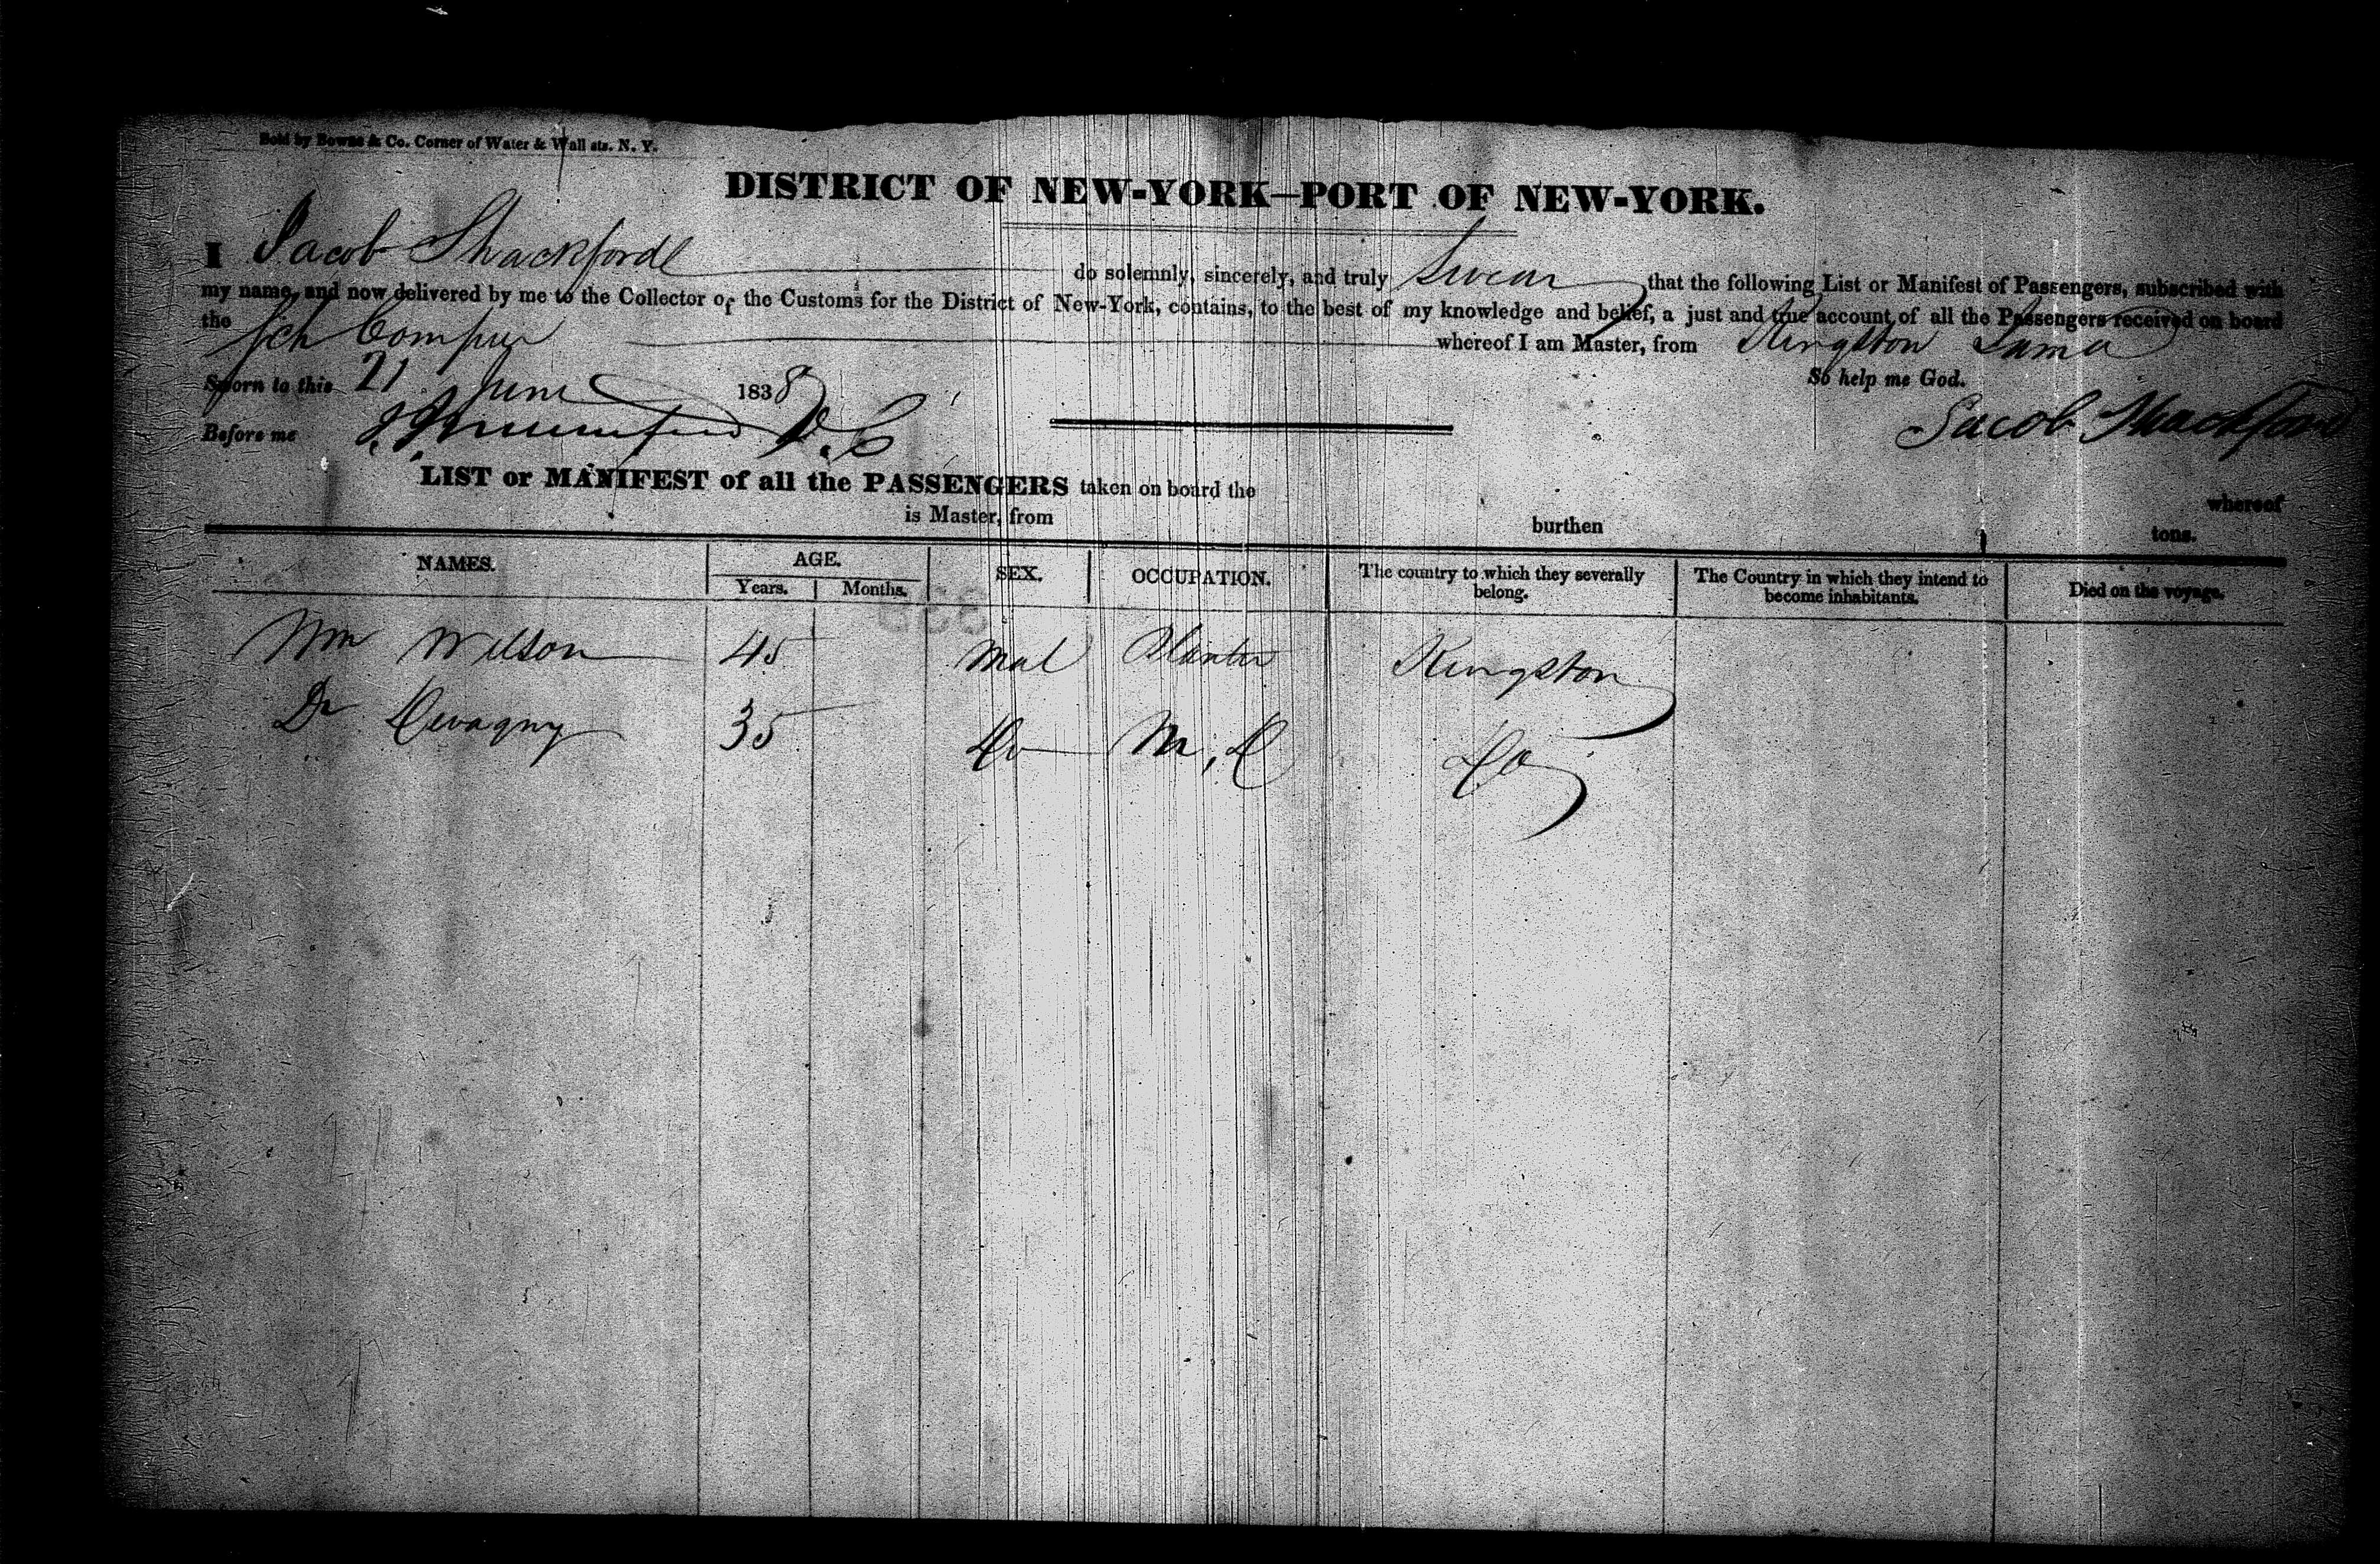 Sold by Bowne & Co. Corner of Water & Wall sts. N. Y.
DISTRICT OF NEW-YORK—PORT OF NEW-YORK.
I Jacob Shackford do solemnly, sincerely, and truly Swear that the following List or Manifest of Passengers, subscribed with
my name, and now delivered by me to the Collector of the Customs for the District of New-York, contains, to the best of my knowledge and belief, a just and true account of all the Passengers received on board
the Sch whereof I am Master, from Kingston Jama
Sworn to this 21 June 1838 So help me God.
Before me D. C Jacob Shackford
LIST or MANIFEST of all the PASSENGERS taken on board the whereof
is Master, from burthen tons.
NAMES. AGE. SEX. OCCUPATION. The country to which they severally belong. The Country in which they intend to become inhabitants. Died on the voyage.
Years. Months.
Wm Wilson 45 Mal Planter Kingston
Dr 35 Do M, D Do